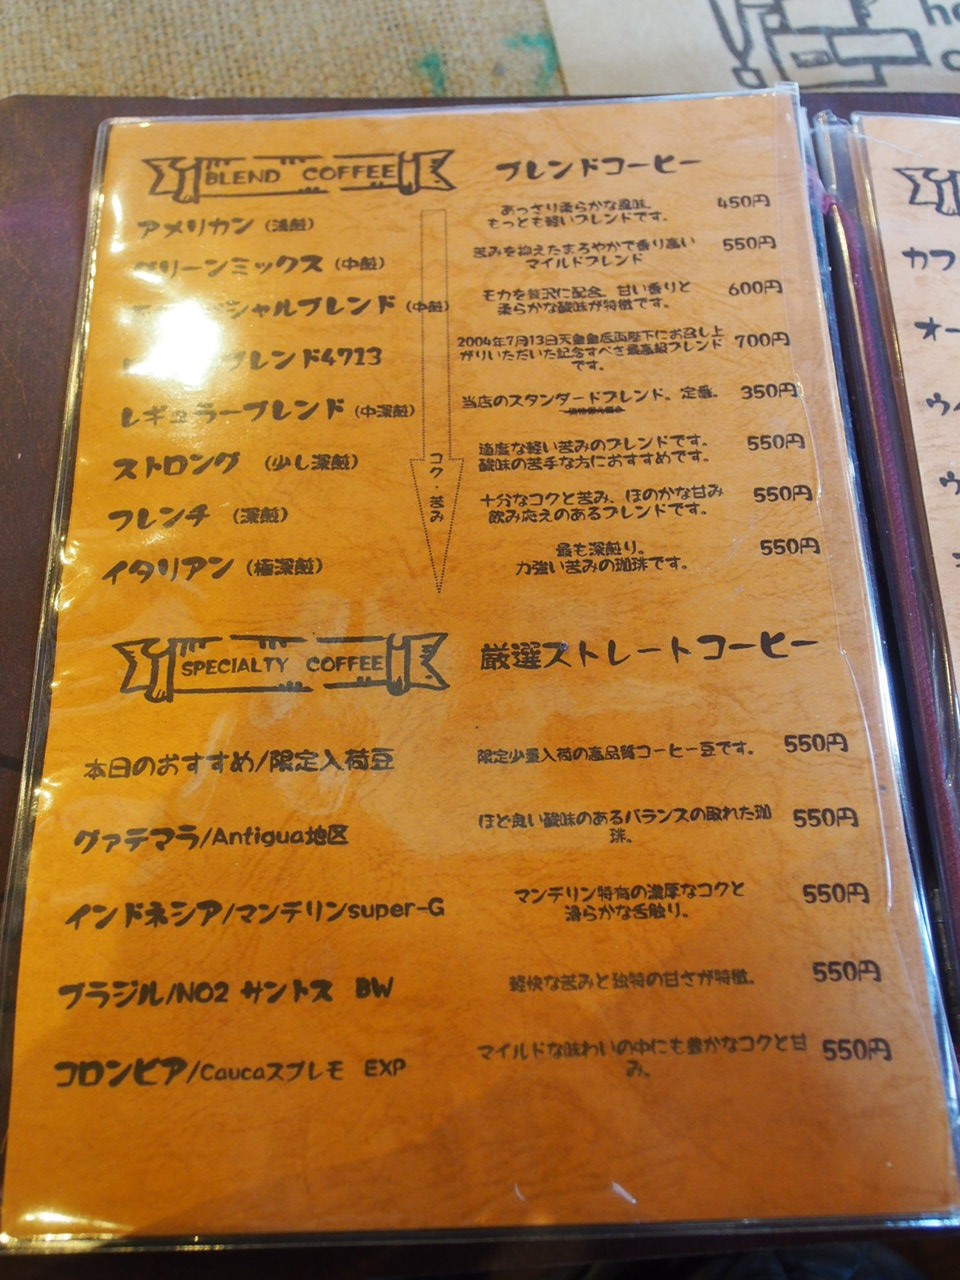 BLEND COFFEE ブレンドコーヒー
アメリカン (浅煎) あっさり柔らかな風味。 450円
もっとも軽いブレンドです。
グリーンミックス (中煎) 苦みを抑えたまろやかで香り高い 550円
マイルドブレンド
シャルブレンド (中煎) モカを贅沢に配合。甘い香りと 600円
柔らかな酸味が特徴です。
ブレンド4713 2004年7月13日天皇皇后両陛下にお召し上 700円
がりいただいた記念すべき最高級ブレンド
です。
レギュラーブレンド (中深煎) 当店のスタンダードブレンド。定番。 350円
ストロング (少し深煎) 適度な軽い苦みのブレンドです。 550円
酸味の苦手な方におすすめです。
フレンチ (深煎) 十分なコクと苦み、ほのかな甘み 550円
飲み応えのあるブレンドです。
イタリアン (極深煎) 最も深煎り。 550円
力強い苦みの珈琲です。
コク・苦み
SPECIALTY COFFEE 厳選ストレートコーヒー
本日のおすすめ/限定入荷豆 限定少量入荷の高品質コーヒー豆です。 550円
グァテマラ/Antigua地区 ほど良い酸味のあるバランスの取れた珈 550円
琲。
インドネシア/マンデリンsuper-G マンデリン特有の濃厚なコクと 550円
滑らかな舌触り。
ブラジル/NO2 サントス BW 軽快な苦みと独特の甘さが特徴。 550円
コロンビア/Caucaスプレモ EXP マイルドな味わいの中にも豊かなコクと甘 550円
み。
カフ
オー
ウ
ウ